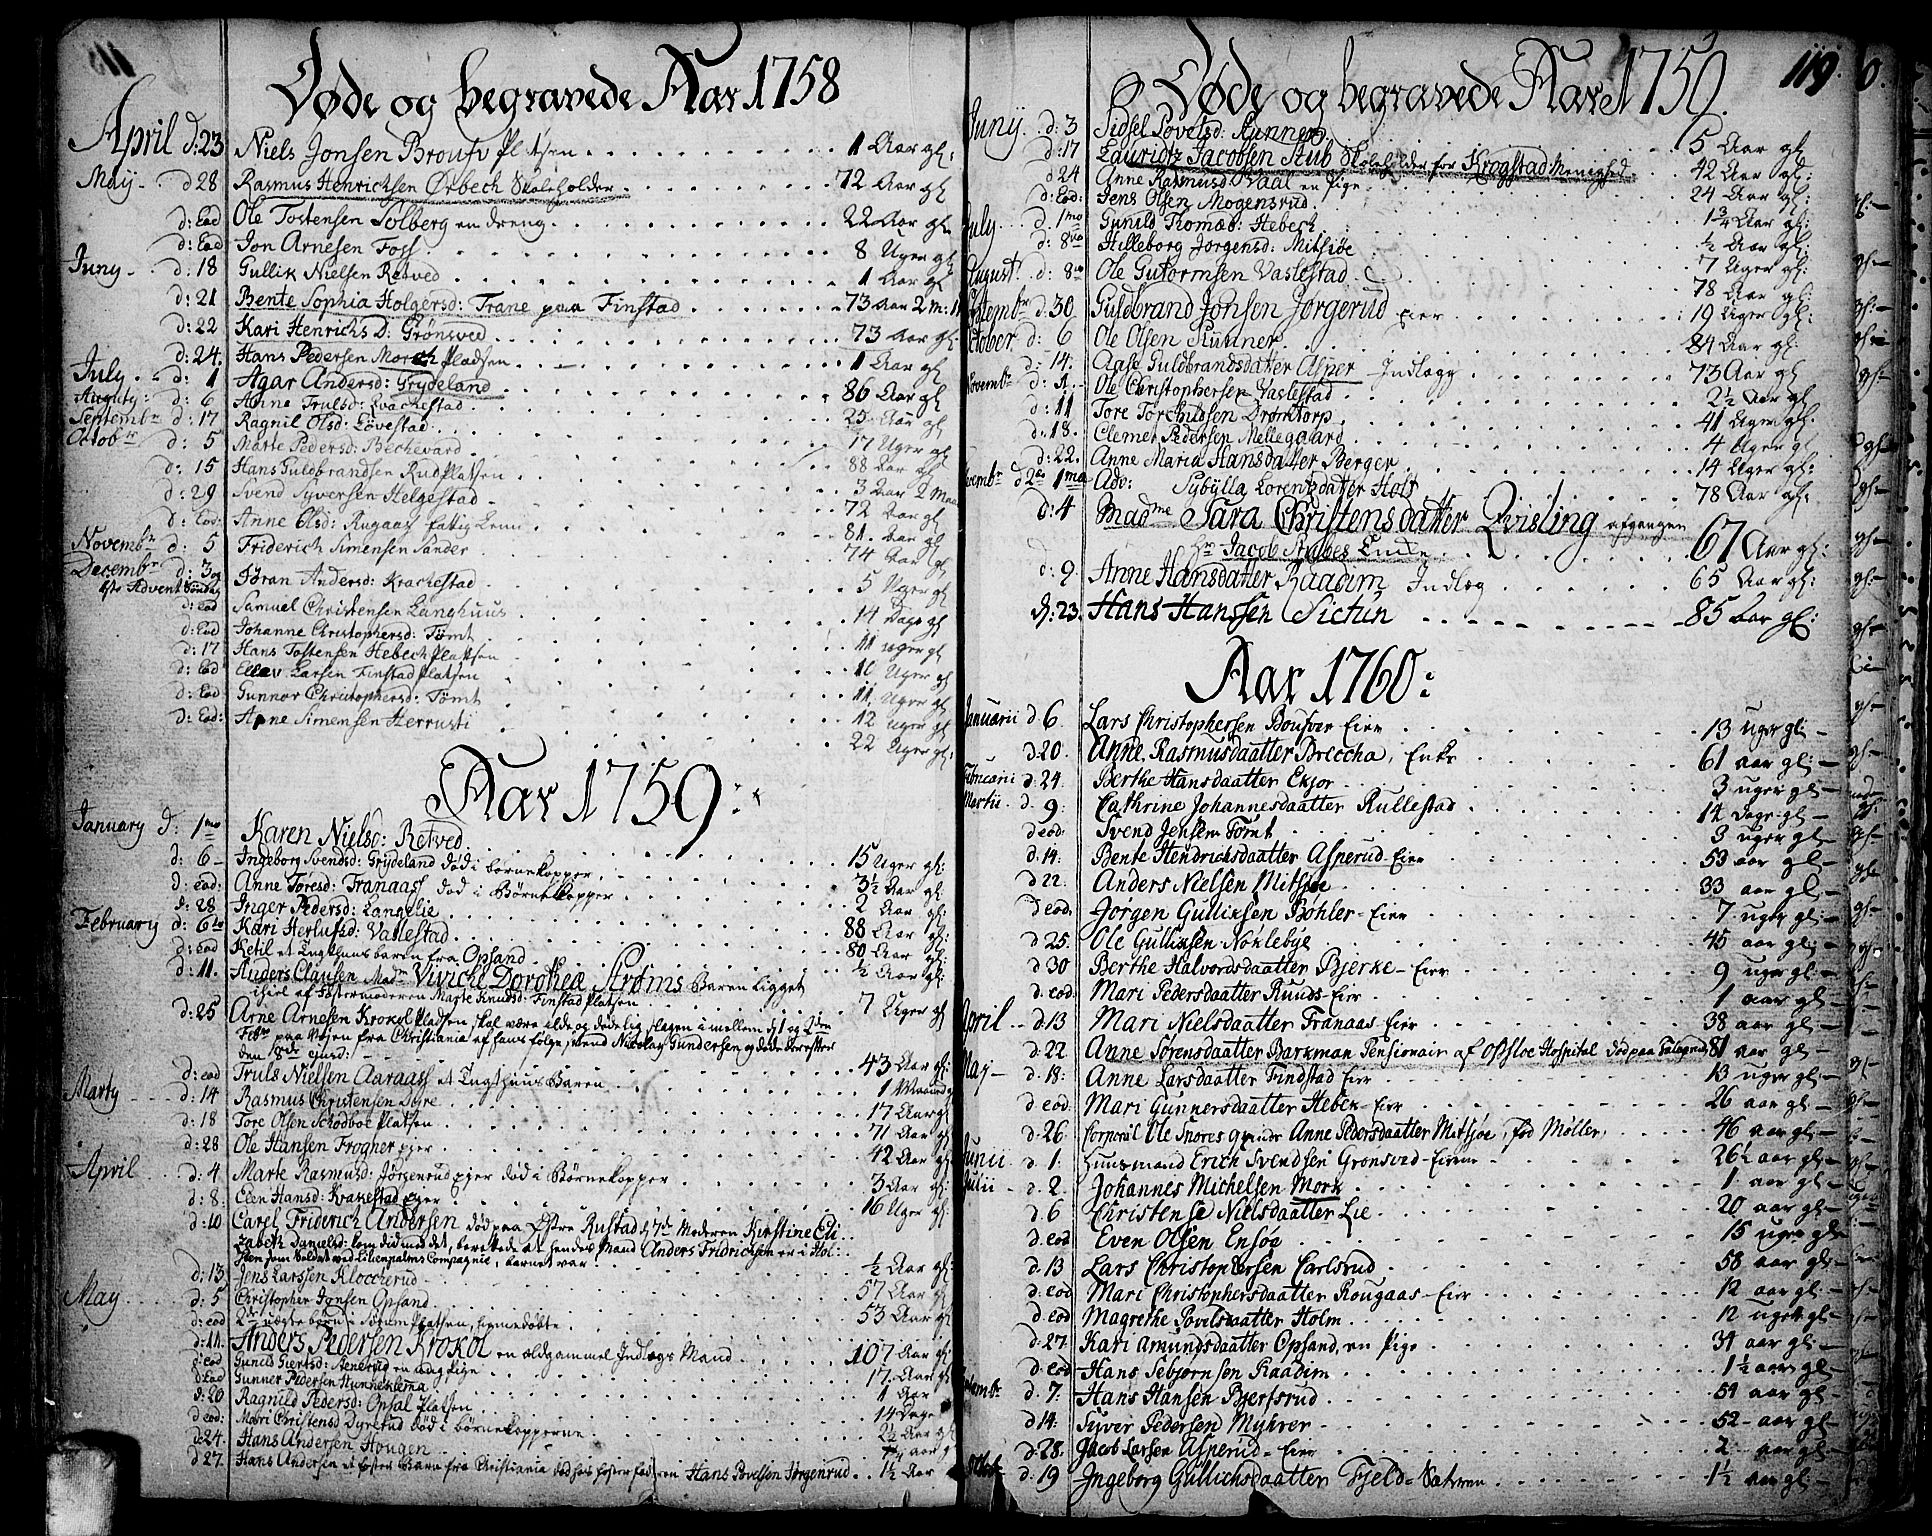 Døde og begravede Aar 1758
April d: 23 Niels Jonsen 1 Aar gl:
May d 28 Rasmus Henrichsen Ørbech Skoleholder 72 Aar gl
d: Eod Ole Tostensen Solberg en dreng 22 Aar gl
d: Eod Jon Arnesen Foss 8 Uger gl
Juny d: 18 Gullik Nielsen Retved 1 Aar gl
d: 21 Bente Sophia Holgersd: Trane paa Finstad 73 Aar 2 M:
d: 22 Kari Henrichs D: Grønsved 73 Aar gl
d: 24. Hans Pedersen Morch Pladsen 1 Aar gl
July d: 1 Agar Andersd: Grydeland 86 Aar gl
Augusty: d: 6 Anne Trulsd: Krackestad 25 Aar gl
Septembr d: 17 Ragnil Olsd: Løvestad 17 Uger gl
Octobr d: 5 Marte Pedersd: Bechevard 88 Aar gl
d: 15 Hans Guldbrandsen Rud Platsen 3 Aar 2 Maa
d: 29 Svend Syversen Helgestad 72 Aar gl
d: Eod: Anne Olsd: Rugaas fattig Lem 81. Aar gl
Novembr d: 5 Friderich Simensen Sander 74 Aar gl
Decembr d: 3 Jøran Andersd: Krackestad 5 Uger gl
Advent Søndag d: Eod Samuel Christensen Langhuus 14 Dage gl
d: Eod Johanne Christophersd: Tømt 11 uger gl
d: 17 Hans Tostensen Hebech Platsen 10 Uger gl
d: Eod Ellev Larsen Finstad Platsen 11. Uger gl
d: Eod Gunnor Christophersd: Tømt 12 Uger gl
d: Eod: Anne Simensen Herrusti 22 Uger gl:
Aar 1759:
January d: 1mo Karen Nielsd: Retved 15 Uger gl:
d: 6 Ingeborg Svendsd: Grydeland død i børnekopper 3½ Aar gl
d: eod: Anne Toresd: Tranaass død i Børnekopper 2 Aar gl
d: 28 Inger Pedersd: Langelie 88 Aar gl
February d: 6te Kari Herlufsd: Vaslestad 80 Aar gl
d: eod Ketil et Tugthuus baren fra Opsand ½ Aar gl:
d: 11. Anders Clausen Madm Viviche Dorothea Strøms Baren ligget
ihiel af Fostermoderen Marte Knudsd: Finstad Platsen 7 Uger gl
d: 25 Arne Arnesen Krokol Pladsen skal være ilde og dødelig slagen i mellem d 1 og 2den
Febr: paa Vejen fra Christiania af hans følgesvend Nicolay Gundersen og døde derefter
den 8de ejusd: 43 Aar gl:
d: eod Truls Nielsen Aaraass et Tugthuus Baren 1 Maaned
Marty d: 14 Rasmus Christensen Dyre 17 Aar gl
d: 18 Tore Olsen Schodboe Platsen 71 Aar gl
d: 28 Ole Hansen Frogner ejer 42 Aar gl
April d: 4 Marte Rasmusd: Jørgenrud ejer død i Børnekopper 3 Aar gl:
d: 8 Elen Hansd: Krakestad Ejer 16 Uger gl:
d: 10 Carel Friderich Andersen død paa Østre Rustad d 7de Moderen Kirstine Eli-
zabeth Danielsd: som did med det, berettede at hendes Mand Anders Fridrichsen er i Hol-
sten som Soldat ved Lilienpalms Compagnie, barnet var ½ Aar gl:
d: 13 Jens Larssen Kloccherud 57 Aar gl
May d: 5 Christopher Jonsen Opsand 53 Aar gl
d: eod 2de uægte børn i Sørum Platsen, hjemedøbte
d: 11. Anders Pedersen Krokol en oldgammel Indlægs Mand 107 Aar gl
d: eod Gunild Giertsd: en ung Pige 17 Aar gl
d: Eod Gunner Pedersen Hunneklema 1 Aar
d: 20 Ragnild Pedersd: Opsal Platsen 14 Dage
d: eod: Mari Christensd Dyrerud død i børnekopperne 2½ Aar gl
d: 24. Hans Andersen Hougen ¼ aar g
d 27. Hans Andersen et foster Barn fra Christiania død hos fosterfaderen Hans Povelsen Jørgenrud 1½ Aar
119.
Døde og begravede Aar 1759.
Juny d: 3 Sidsel Povelsd: Runnerø 5 Aar gl
d: 17 Lauridtz Jacobsen Stub Skoleholder for Krogstad Menighed 42 Aar gl:
d 24 Anne Rasmusd: Waal en Pige 24 Aar gl:
d: Eod: Jens Olsen Mogensrud 1¾ Aar gl:
July d 1mo Gunild Thomæd: Hebech ½ Aar gl:
d: 8vo Hilleborg Jørgensd: Mitsiøe 7 Uger gl:
August d: 8 Ole Gutormsen Vaslestad 78 Aar gl:
Septembr d: 30 Guldbrand Jonsen Jørgerud Eier 19 Uger gl:
October d: 6 Ole Olsen Kullner 84 Aar gl:
d: 14. Aase Guldbrandsdatter Asper Indlægg 73 Aar gl
Novembr d: 4. Ole Christophersen Vaslestad 2½ Aar gl:
d: 11 Tore Torchildsen Drømtorp 41 Uger gl:
d: 18. Clemet Pedersen Mellegaard 4 Uger gl
d: 22. Anne Maria Hansdatter Berger 14 Uger gl:
Decembr d 1ma Adv: Sybylla Lorentzdatter Holt 78 Aar gl:
d: 4 Madme Sara Christensdatter Qvisling afgangen
Hr Jacob Stubes Enke 67 Aar gl:
d: 9 Anne Hansdatter Raadim Indlæg 65 Aar gl:
d: 23. Hans Hanssen Sictun 85 Aar gl:
Aar 1760:
Januarii d 6 Lars Christophersen Bousver Eier 13 uger gl:
d 20. Anne Rasmusdaatter Breccha, Enke 61 aar gl:
Februarii d: 24 Berthe Hansdaatter Ekjor 3 uger gl:
Martii d: 9: Cathrine Johannesdaatter Rullestad 14 Dage gl
d eod: Svend Jensen Tømt 3 uger gl
d: 14: Bente Hendrichsdaatter Asperud Eier 53 aar gl
d 22. Anders Nielsen Mitsjøe 33 aar gl
d eod. Jørgen Gulliksen Bøhler Eier 7 uger gl:
d 25. Ole Gulliksen Nøklebye 45 aar gl:
d 30 Berthe Halvordsdaatter Bjerke Eier 9 uger gl:
d. eod: Mari Pedersdaatter Ruuds Eier 1 aar gl
April d: 13 Mari Nielsdaatter Tranaas Eier 38 aar gl
d: 22 Anne Sørensdaatter Barkman Pensionair af Opsloe Hospital død paa 81 aar gl
Maj d: 18: Anne Larsdaatter Findstad Eier 13 uger gl
d eod. Mari Gunnersdaatter Hebek Eier 26 aar gl:
d. 26. Corporal Ole Snores qvinde Anne Pedersdaatter Mitsjøe, fød Møller 46 aar gl
Junii d 1: Huusmand Erich Svendsen Grønsved Eierne 26½ aar gl
Julii d: 2. Johannes Michelsen Mork 1 aar gl
d 6 Christense Nielsdaatter Lie 20 aar gl
d. eod Even Olsen Ensøe 15 uger gl
d: 13 Lars Christophersen Carlsrud 58 aar gl:
d: eod Mari Christophersdaatter Rougaas Eier 12 aar gl:
d eod Magrethe Povelsdaatter Holm 12 uger gl
d: 27. Kari Amundsdaatter Opsand, en Pige 34 aar gl:
d: eod: Hans Sebjørnsen Raadim 1½ aar gl
d: 7. Hans Hansen Bjertsrud 54 aar gl:
d 14: Syver Pedersen Myhrer 52 aar gl
d: 28. Jacob Larsen Asperud Eier 2 aar gl:
Octobr d: 19 Ingeborg Gullichsdaatter Fjeld-Sæteren 1½ aar gl: